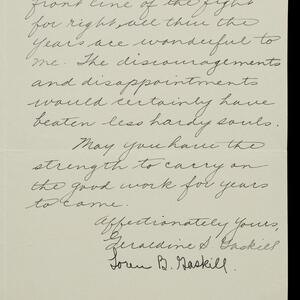 front line of the fight
for right, all thru the
years are wonderful to
me. The discouragements
and disappointments
would certainly have
beaten less hardy souls.
May you have the
strength to carry on
the good work for years
to come.
Affectionately yours,
Geraldine S. Gaskill
Loren B. Gaskill.